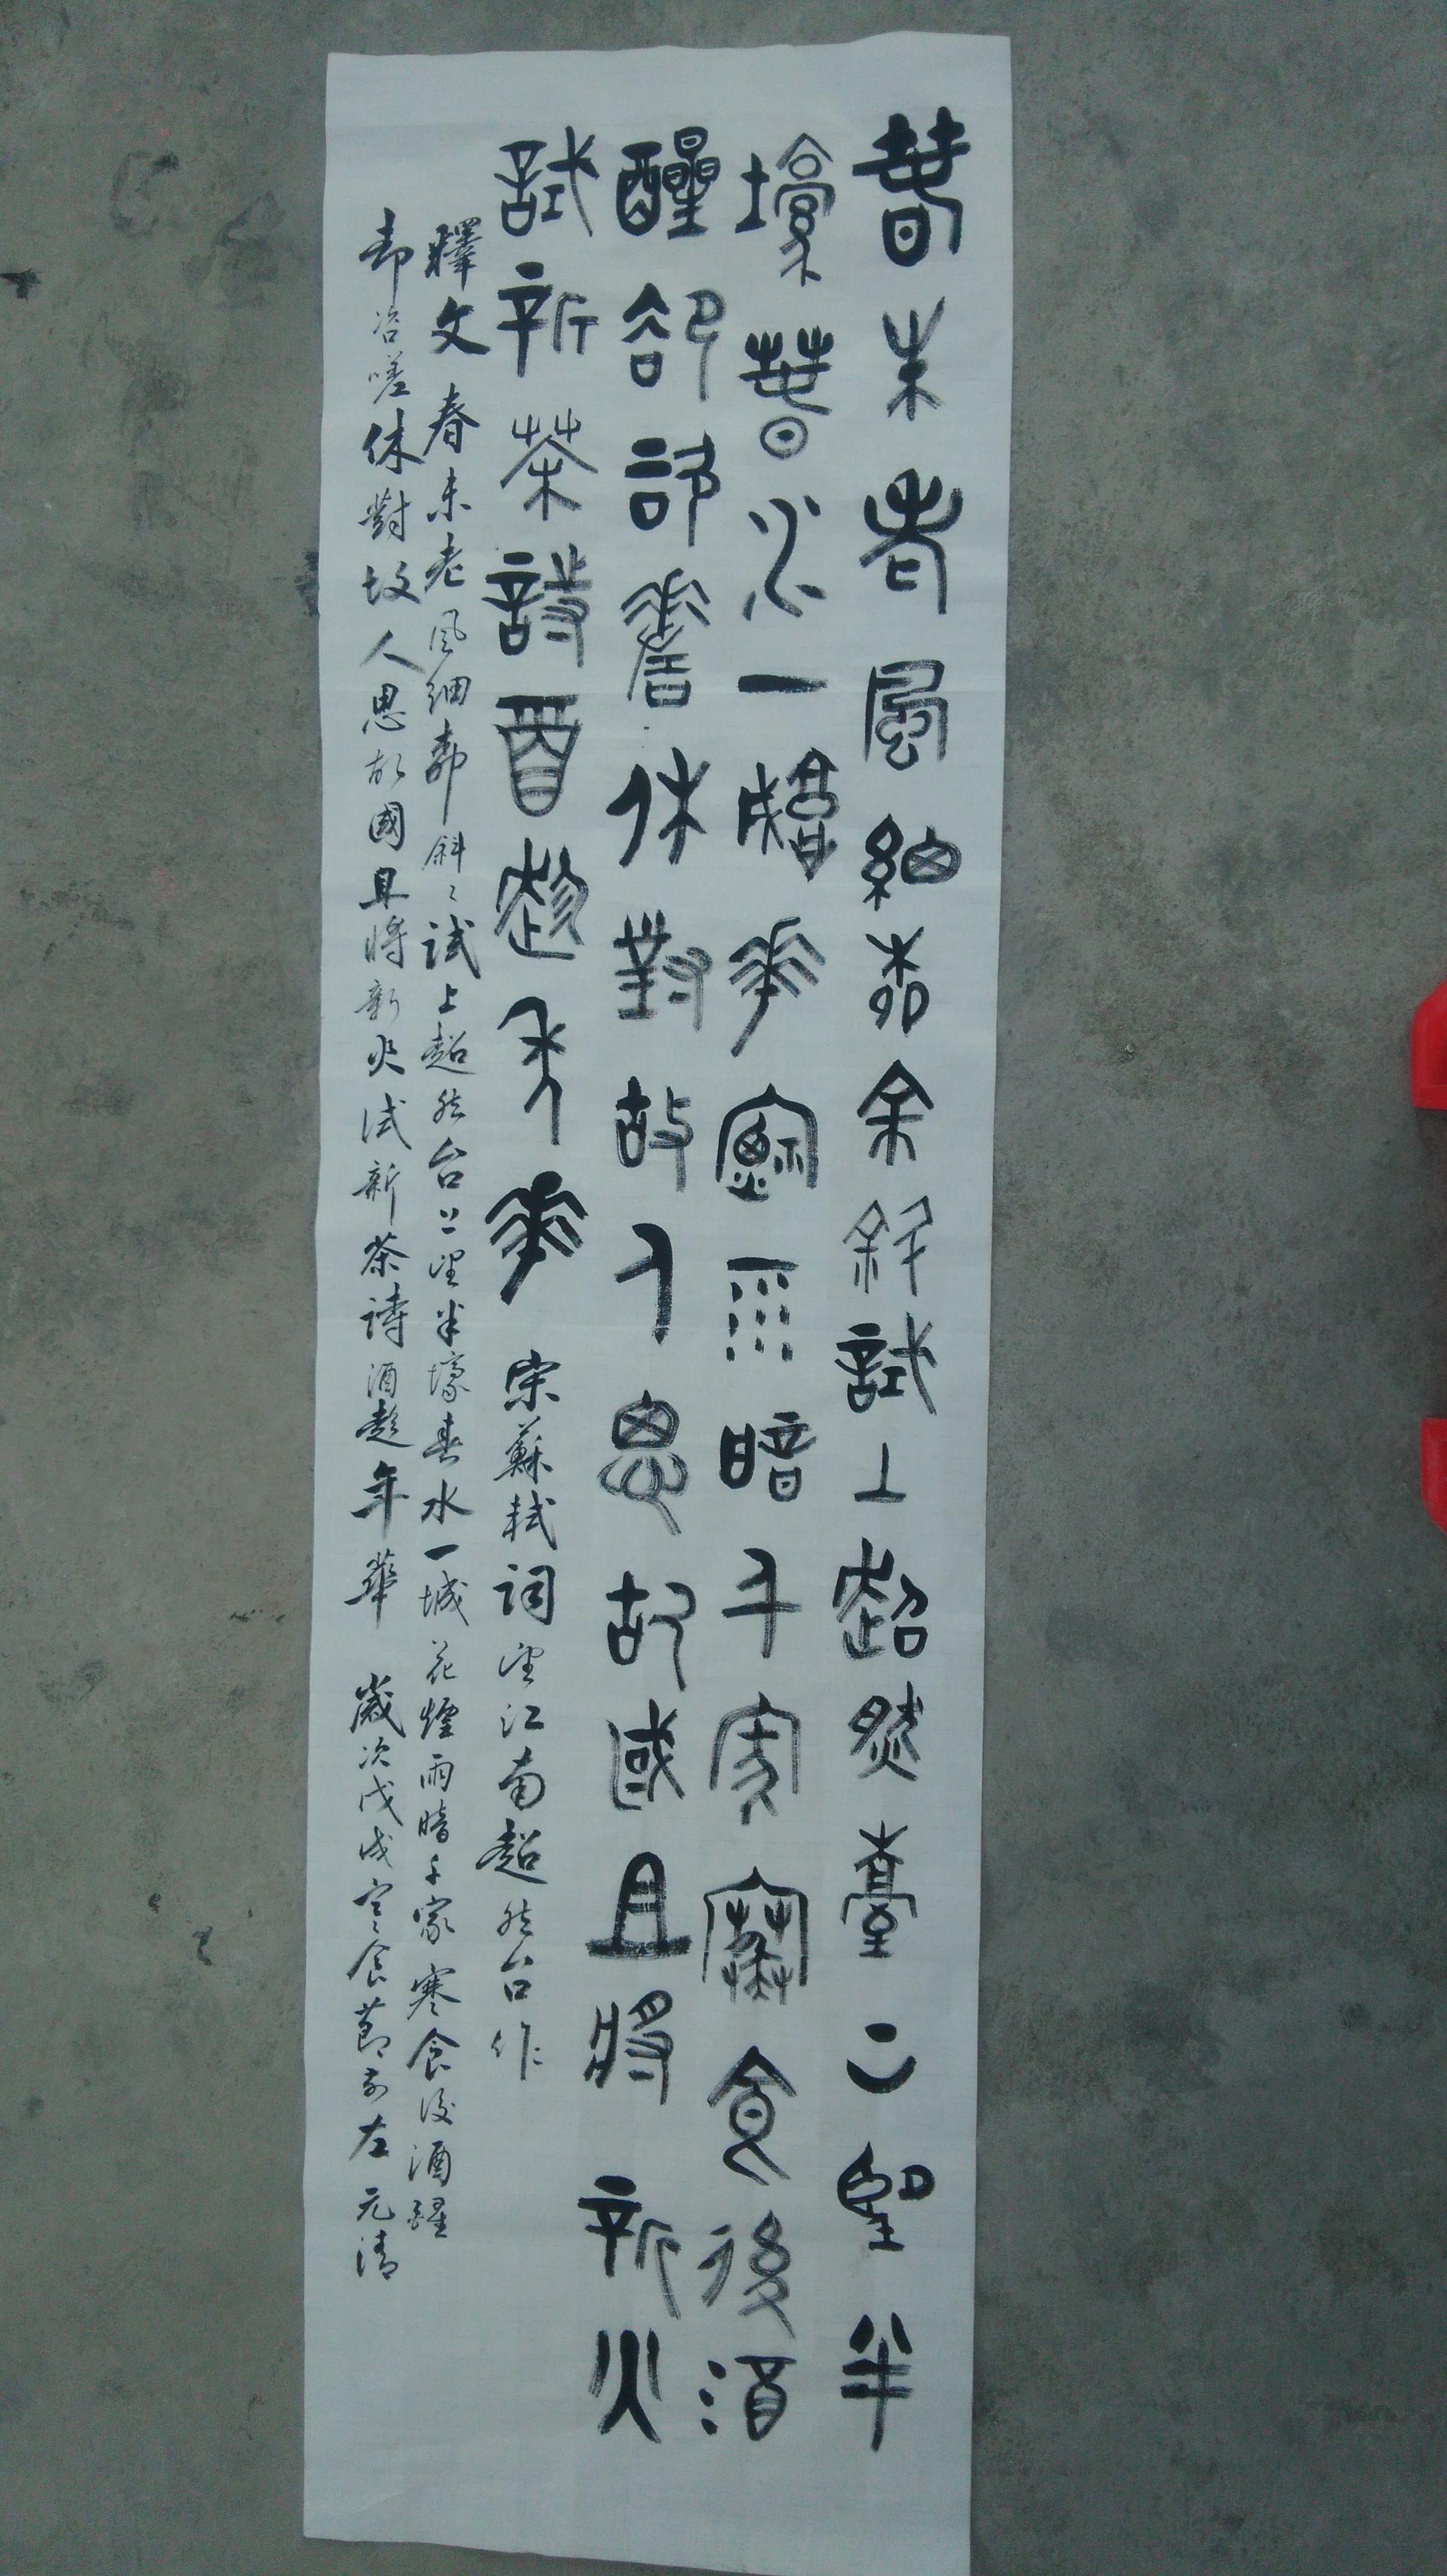 春未老風細柳余斜試上超然臺二望半
壕春水一城花煙雨暗千家寒食後酒
醒卻咨嗟休對故人思故國且將新火
試新茶詩酒趁年華 宋蘇軾詞望江南超然台作
釋文 春未老風細柳斜斜試上超然台上望半壕春水一城花煙雨暗千家寒食後酒醒
却咨嗟休對故人思故國且將新火試新茶詩酒趁年華 歲次戊戌寒食節前左元清